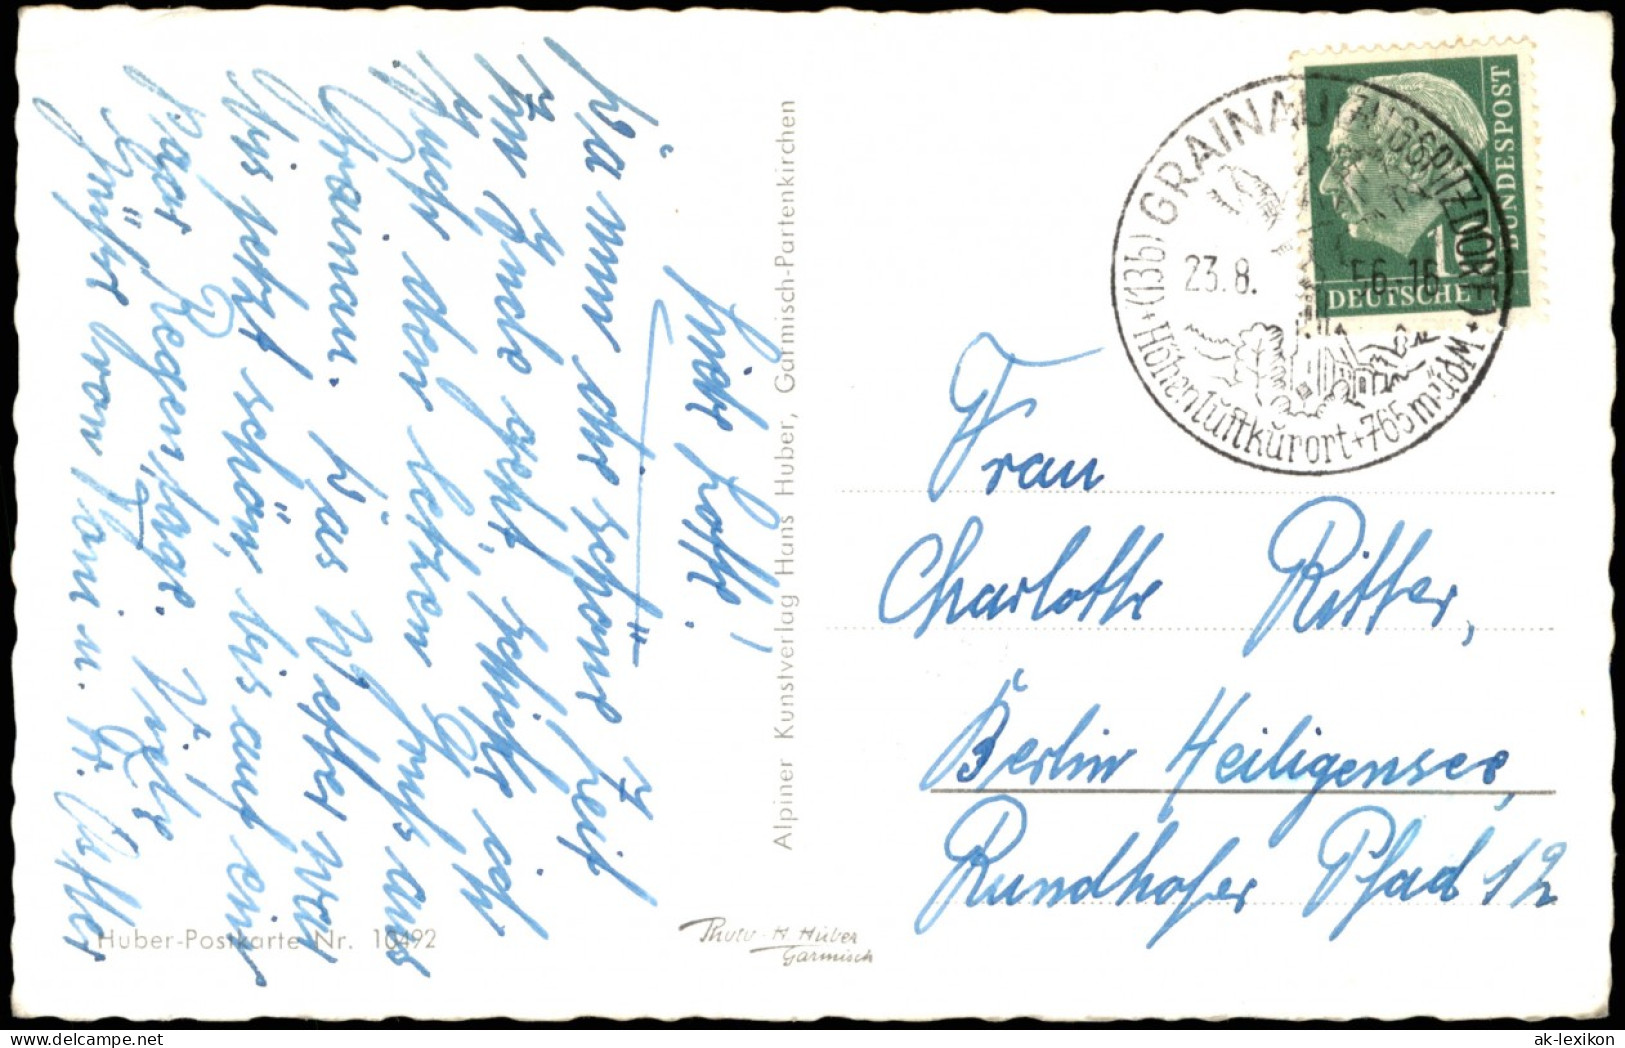 Liebe Lotte!
Da nun die schöne Zeit
zu Ende geht, schicke ich
Auch den letzten Gruß aus
Grainau. Das Wetter war
bis jetzt schön, bis auf ein
paar Regentage. Viele
Grüße von
Alpiner Kunstverlag Hans Huber, Garmisch-Partenkirchen
Huber-Postkarte Nr. 10492
Photo-H. Huber
Garmisch
(13b) GRAINAU (ZUGSPITZDORF)
23.8. 56.-16
+Höhenluftkurort+765m.ü.d.M.+
DEUTSCHE
BUNDESPOST
10
Frau
Charlotte Ritter,
Berlin Heiligensee,
Rundhofer Pfad 12
ak-lexikon